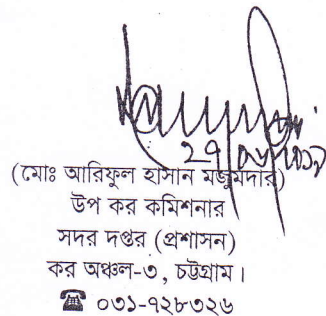 (মোঃ আরিফুল হাসান মজুমদার)
উপ কর কমিশনার
সদর দপ্তর (প্রশাসন)
কর অঞ্চল-৩, চট্টগ্রাম।
☎ ০৩১-৭২৮৩২৬